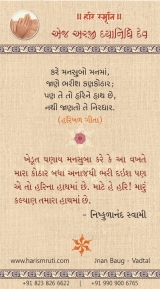 ॥ હરિ સ્મૃતિ ॥
એજ અરજી દયાનિધિ દેવ
કરે મનસુબો મનમાં,
જાણે ભરીશ કણકોઠાર;
પણ તે તો હરિને હાથ છે,
નથી જાણતો તે નિરધાર.
(હરિબળ ગીતા)
ખેડુત ઘણાય મનસુબા કરે કે આ વખતે
મારા કોઠાર બધા અનાજથી ભરી દઇશ પણ
એ તો હરિના હાથમાં છે. માટે હે હરિ! મારું
કલ્યાણ તમારા હાથમાં છે.
- નિષ્કુળાનંદ સ્વામી
www.harismruti.com
Jnan Baug – Vadtal
+91 823 826 6622 | +91 990 900 6765